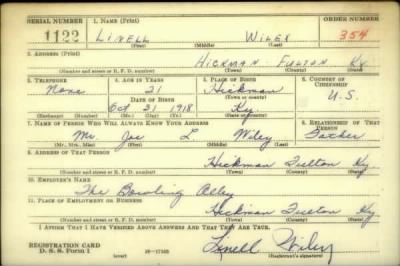 SERIAL NUMBER 1. NAME (Print) ORDER NUMBER
1122 LINELL WILEY 354
(First) (Middle) (Last)
2. ADDRESS (Print)
HICKMAN FULTON Ky.
(Number and street or R. F. D. number) (Town) (County) (State)
3. TELEPHONE 4. AGE IN YEARS 5. PLACE OF BIRTH 6. COUNTRY OF CITIZENSHIP
None 21 Hickman U.S.
DATE OF BIRTH (Town or county)
Oct 31 1918 Ky
(Exchange) (Number) (Mo.) (Day) (Yr.) (State or country)
7. NAME OF PERSON WHO WILL ALWAYS KNOW YOUR ADDRESS 8. RELATIONSHIP OF THAT PERSON
Mr Joe L Wiley Father
(Mr., Mrs., Miss) (First) (Middle) (Last)
9. ADDRESS OF THAT PERSON
Hickman Fulton Ky
(Number and street or R. F. D. number) (Town) (County) (State)
10. EMPLOYER'S NAME
The Bowling Alley
11. PLACE OF EMPLOYMENT OR BUSINESS
Hickman Fulton Ky
(Number and street or R. F. D. number) (Town) (County) (State)
I AFFIRM THAT I HAVE VERIFIED ABOVE ANSWERS AND THAT THEY ARE TRUE.
REGISTRATION CARD Linell Wiley
D. S. S. Form 1 (over) (Registrant's signature)